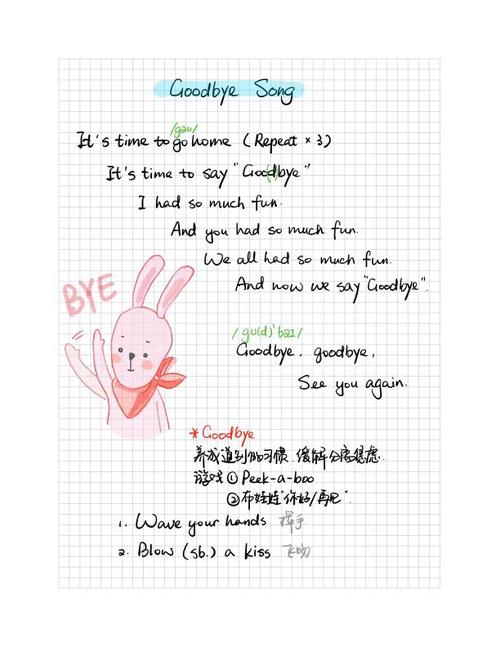 Goodbye Song
/gəu/
It's time to go home (Repeat × 3)
It's time to say "Goodbye"
I had so much fun.
And you had so much fun.
We all had so much fun.
And now we say "Goodbye".
BYE
/gu(d)'baɪ/
Goodbye, goodbye,
See you again.
*Goodbye
养成道别的习惯 缓解分离焦虑.
游戏 ① Peek-a-boo
② 布娃娃"你好/再见".
1. Wave your hands 挥手
2. Blow (sb.) a kiss 飞吻